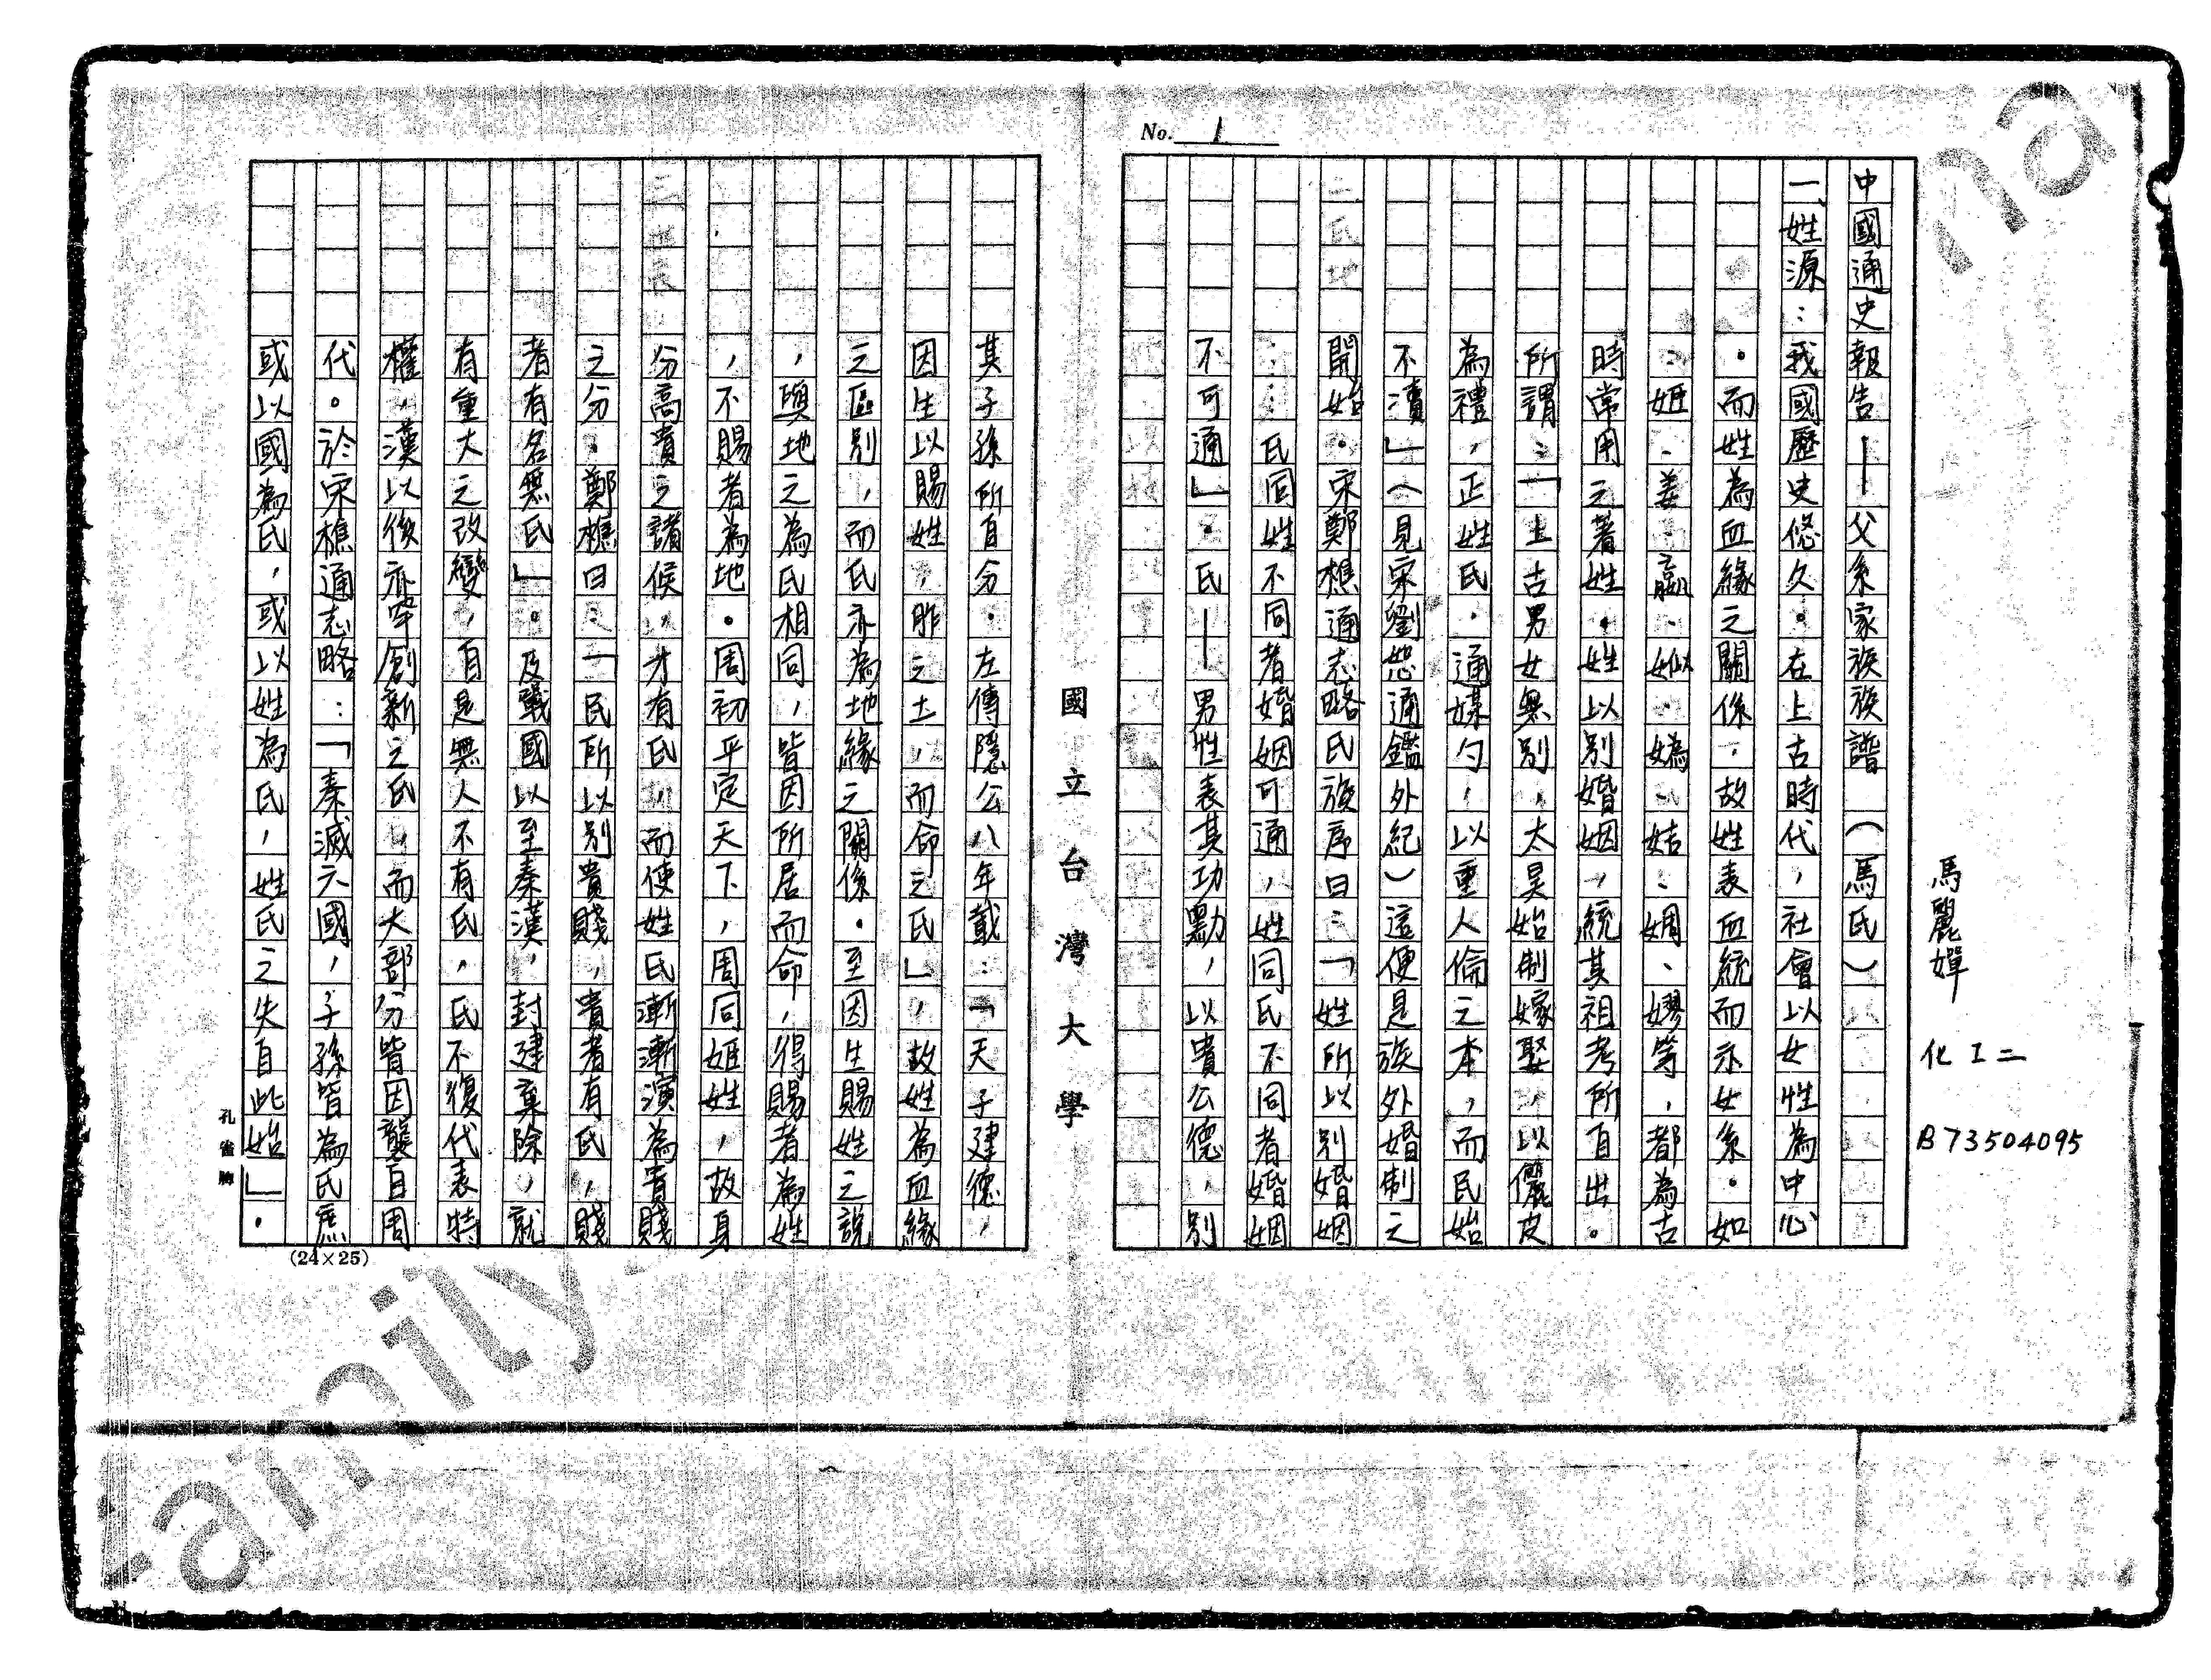 No. 1
馬麗嬋 化工二 B73504095
中國通史報告——父系家族族譜（馬氏）
一、姓源：我國歷史悠久。在上古時代，社會以女性為中心
。而姓為血緣之關係，故姓表血統而亦女系。如
：姬、姜、嬴、姒、媯、姞、婤、嫪等，都為古
時常用之著姓。姓以別婚姻，統其祖考所自出。
所謂：「上古男女無別，太昊始制嫁娶，以儷皮
為禮，正姓氏。通媒勺，以重人倫之本，而民始
不瀆」（見宋劉恕通鑑外紀）這便是族外婚制之
開始。宋鄭樵通志略氏族序曰：「姓所以別婚姻
……氏同姓不同者婚姻可通，姓同氏不同者婚姻
不可通」。氏——男性表其功勳，以貴公德，別
國立台灣大學
其子孫所自分。左傳隱公八年載：「天子建德，
因生以賜姓，胙之土，而命之氏」，故姓為血緣
之區別，而氏亦為地緣之關係。至因生賜姓之說
，與地之為氏相同，皆因所居而命，得賜者為姓
，不賜者為地。周初平定天下，周同姬姓，故身
分高貴之諸侯，才有氏，而使姓氏漸漸演為貴賤
之分。鄭樵曰：「民所以別貴賤，貴者有氏，賤
者有名無氏」。及戰國以至秦漢，封建棄除，就
有重大之改變，自是無人不有氏，氏不復代表特
權，漢以後亦罕創新之氏，而大部分皆因襲自周
代。於宋樵通志略：「秦滅六國，子孫皆為民庶
或以國為氏，或以姓為氏，姓氏之失自此始」。
(24×25)
孔雀牌
family
na